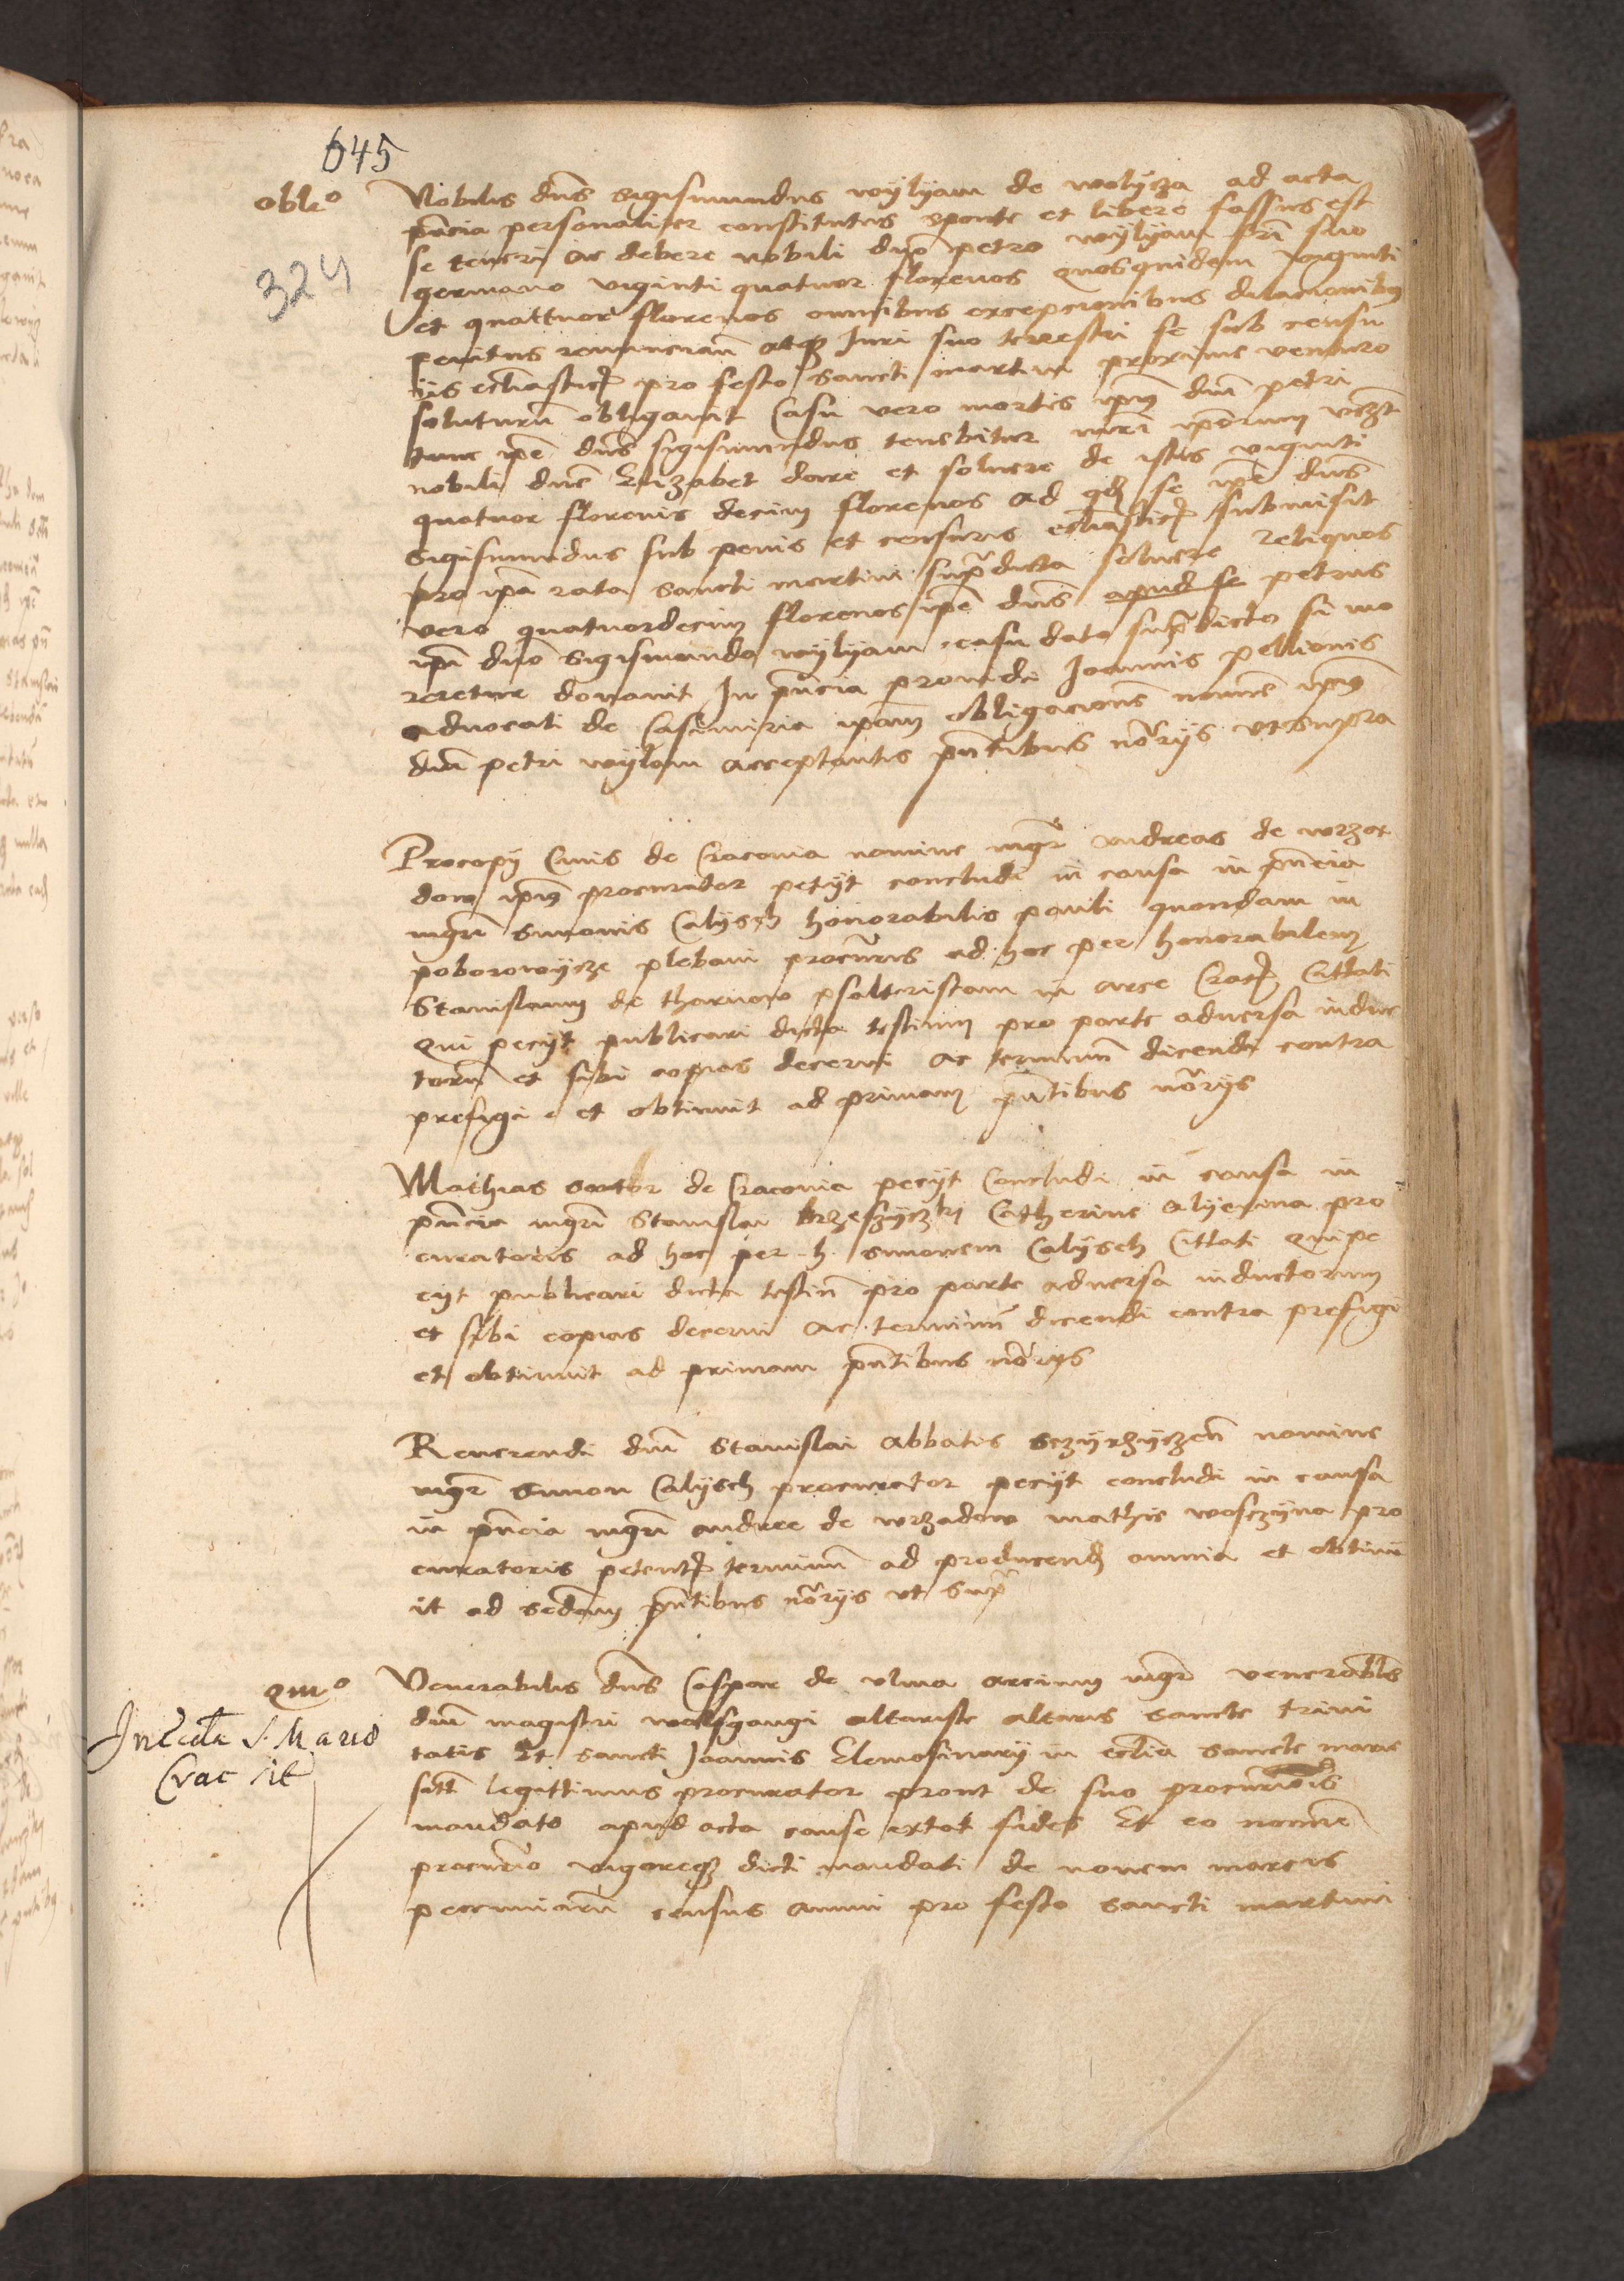 645
obligo
324
Nobilis dns Sigismundus wylyam de wolycza ad acta
pncia personaliter constitutus sponte et libere fassus est
se teneri ac debere nobili dno petro wylyam fri suo
germano viginti quatuor florenos quosquidem viginti
et quattuor florenos omnibus excepcionibus dilacionibus
penitus renuncians atque Iuri suo terrestri se sub censu
iis eccliasticis pro festo sancti martini proxime venturo
soluturum obligavit Casu vero mortis ipius dni petri
tunc ipe dns sigismundus tenebitur uxori ipsorum
nobili dne Elizabet dare et solvere de istis viginti
quatuor florenis decim florenos ad qd se ipe dns
sigismundus sub penis et censuris eccliasticis submisit
pro ipa rata sancti martini supradicta solvere Reliquos
vero quatuordecim florenos ipe dns apud se petrus
ipi dno Sigismundo wylyam casu dato supradicto si mo
reretur donavit In pncia providi Joannis pellionis
advocati de Casimiria ipam obligacionem nomine ipius
dni petri wylam acceptantis pntibus notarijs ut supra
Procopy Civis de Cracovia nomine mgr Andreas de wrzat
dow ipius procurator petyt concludi in causa in pncia
mgri Simonis Calysch honorabilis pauli quondam in
poborowycze plebani procuratoris ad hoc per honorabilem
Stanislaum de tharnow psalteristam in arce Crac Cittati
Qui pecyt publicari dicta testium pro parte adversa induc
torum et sibi copias decerni ac terminum dicendi contra
prefigi et obtinuit ad primam pntibus notarijs
Mathias sutor de Cracovia pecyt Concludi in causa in
pncia mgri Stanislai Catherine pro
curatoris ad hoc per h. simonem Calysch Cittati Qui pe
cyt publicari dicta testium pro parte adversa inductorum
et sibi copias decerni ac terminum dicendi contra prefigi
et obtinuit ad primam pntibus notarijs
Reverendi dni Stanislai Abbatis Sczyrzyczen nomine
mgr Simon Calysch procurator pecyt concludi in causa
in pncia mgri andree de wrzadow mathie wosczyna pro
curatoris petentis terminum ad producendum omnia et obtinu
it ad scdam pntibus notarijs ut supra
In Eccla S. Mariae
Crac sit
Venerabilis dns Caspar de ulma arcium mgr venerabilis
dni magistri wolfgangi altariste altaris sancte trini
tatis Et sancti Joannis Elemosinarij in ecclia sancte marie
siti legittimus procurator prout de suo procurationis
mandato apud acta cause extat fides Et eo nomine
procurio vigoreque dicti mandati de novem marcis
pecuniarum census annui pro festo sancti martini